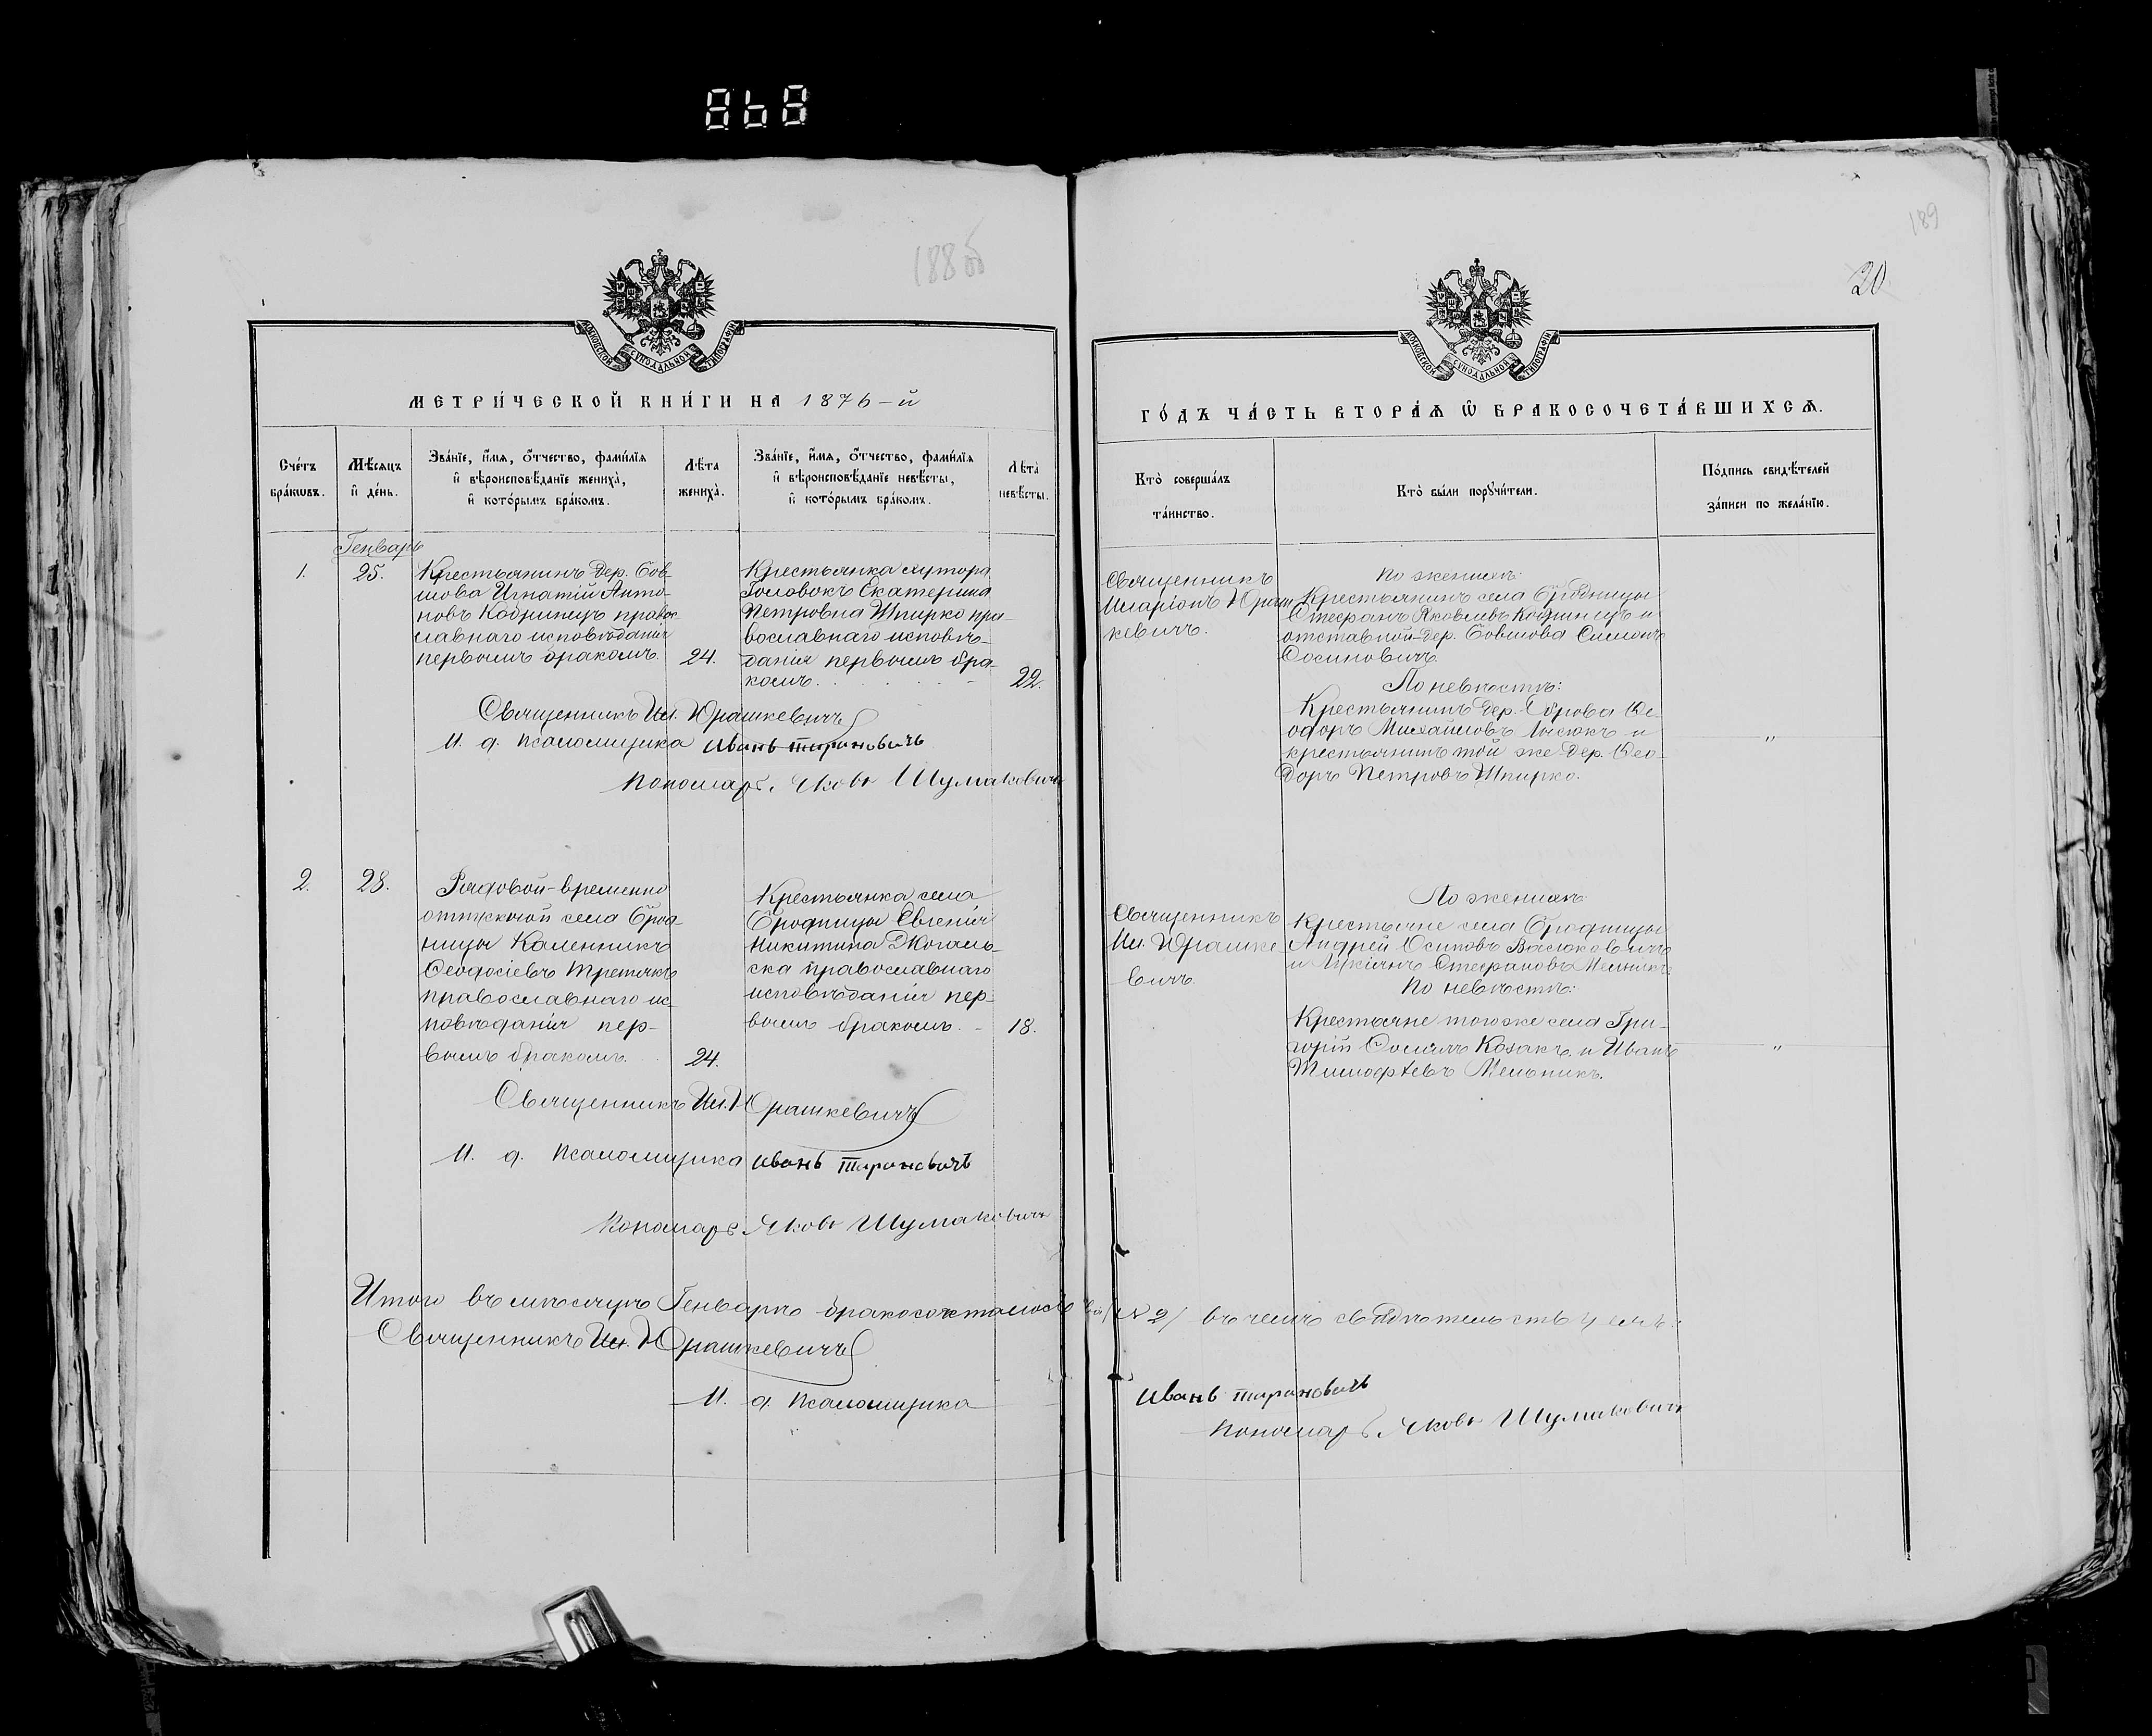 188 об
189
20
МОСКОВСКОЙ СѴНОДАЛЬНОЙ ТИПОГРАФІИ
МОСКОВСКОЙ СѴНОДАЛЬНОЙ ТИПОГРАФІИ
МЕТРИ́ЧЕСКОЙ КНИ́ГИ НА 1876-й
ГО́ДЪ ЧА́СТЬ ВТОРА́Ѧ Ѡ҆ БРАКОСОЧЕТА́ВШИХСѦ.
Сче́тъ
бра́кѡвъ.
Мѣ́сяцъ
и҆ де́нь.
Зва́нїе, и҆́мя, ѻ҆́тчество, фами́лїя
и҆ вѣроисповѣ́данїе жениха̀,
и҆ кото́рымъ бра́комъ.
Лѣ́та
жениха̀.
Зва́нїе, и҆́мя, ѻ҆́тчество, фами́лїя
и҆ вѣроисповѣ́данїе невѣ́сты,
и҆ кото́рымъ бра́комъ.
Лѣ́та
невѣ́сты.
Кто̀ соверша́лъ
та́инство.
Кто̀ бы́ли порꙋчи́тели.
По́дпись свидѣ́телей
за́писи по жела́нїю.
Генварь
1.
25.
Крестьянинъ дер. Бов-
шова Игнатій Анто-
новъ Кобринецъ право-
славнаго исповѣданія
первымъ бракомъ.
24.
Крестьянка хутора
Головокъ Екатерина
Петровна Шпирко пра-
вославнаго исповѣ-
данія первымъ бра-
комъ.
22.
Священникъ
Иларіонъ Юраш-
кевичъ.
По женихѣ:
Крестьянинъ села Бродницы
Стефанъ Яковлевъ Кобринецъ и
отставной дер. Бовшова Симонъ
Осиповичъ.
По невѣстѣ:
Крестьянинъ дер. Оброва Ѳе-
одоръ Михайловъ Лысюкъ и
крестьянинъ той же дер. Ѳео-
доръ Петровъ Шпирко.
"
Священникъ Ил. Юрашкевичъ
И. д. Псаломщика Иванъ Тарановичъ
Пономарь, Яковъ Шумаковичъ
2.
28.
Рядовой-временно
отпускной села Брод-
ницы Каленникъ
Ѳеодосіевъ Третякъ
православнаго ис-
повѣданія пер-
вымъ бракомъ.
24.
Крестьянка села
Бродницы Евгенія
Никитина Жогаль-
ска православнаго
исповѣданія пер-
вымъ бракомъ.
18.
Священникъ
Ил. Юрашке-
вичъ.
По женихѣ
Крестьяне села Бродницы
Андрей Осиповъ Васюковичъ
и Лукіянъ Стефановъ Мельникъ
По невѣстѣ:
Крестьяне того же села Гри-
горій Козакъ и Иванъ
Тимоѳѣевъ Мельникъ.
"
Священникъ Ил. Юрашкевичъ
И. д. Псаломщика Иванъ Тарановичъ
Пономарь Яковъ Шумаковичъ
Итого въ мѣсяцѣ Генварѣ бракосочеталось два (№ 2) въ чемъ свидѣтельствуемъ:
Священникъ Ил. Юрашкевичъ
И. д. Псаломщика Иванъ Тарановичъ
Пономарь Яковъ Шумаковичъ